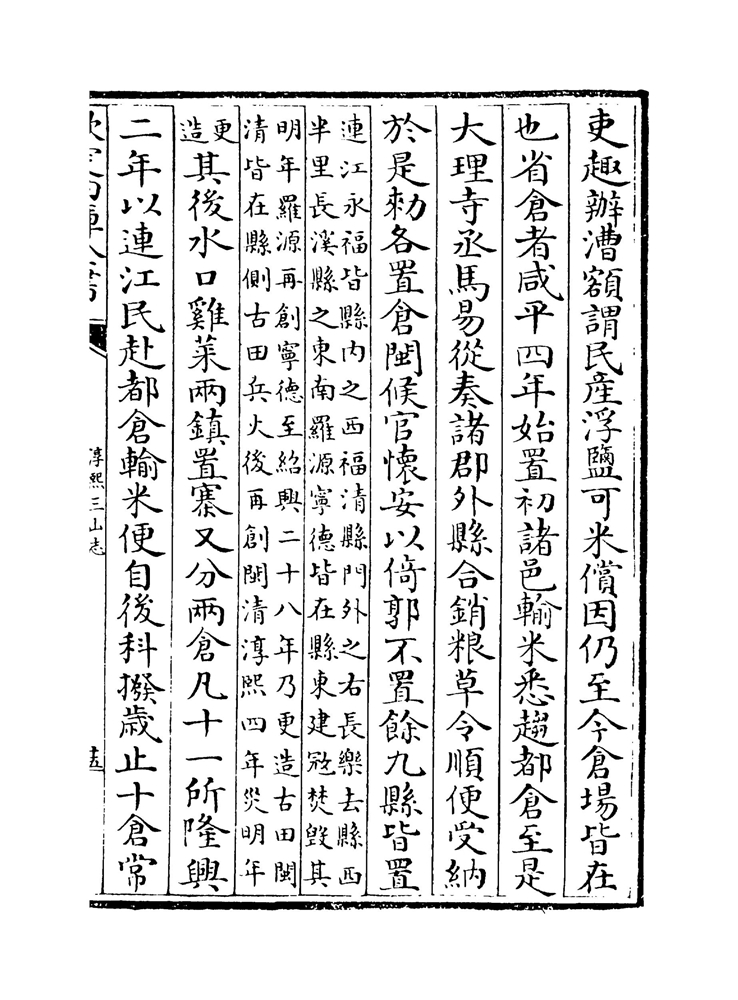 吏趣辦漕額謂民産浮鹽可米償因仍至今倉場皆在
也省倉者咸平四年始置初諸邑輸米悉趨都倉至是
大理寺丞馬易從奏諸郡外縣合銷粮草令順便受納
於是勅各置倉閩候官懷安以倚郭不置餘九縣皆置
連江永福皆縣内之西福清縣門外之右長樂去縣西
半里長溪縣之東南羅源寧德皆在縣東建冦焚毁其
明年羅源再創寧德至紹興二十八年乃更造古田閩
清皆在縣側古田兵火後再創閩清淳熙四年災明年
更
造
其後水口雞菜兩鎮置寨又分兩倉凡十一所隆興
二年以連江民赴都倉輸米便自後科撥歳止十倉常
欽定四庫全書
淳熙三山志